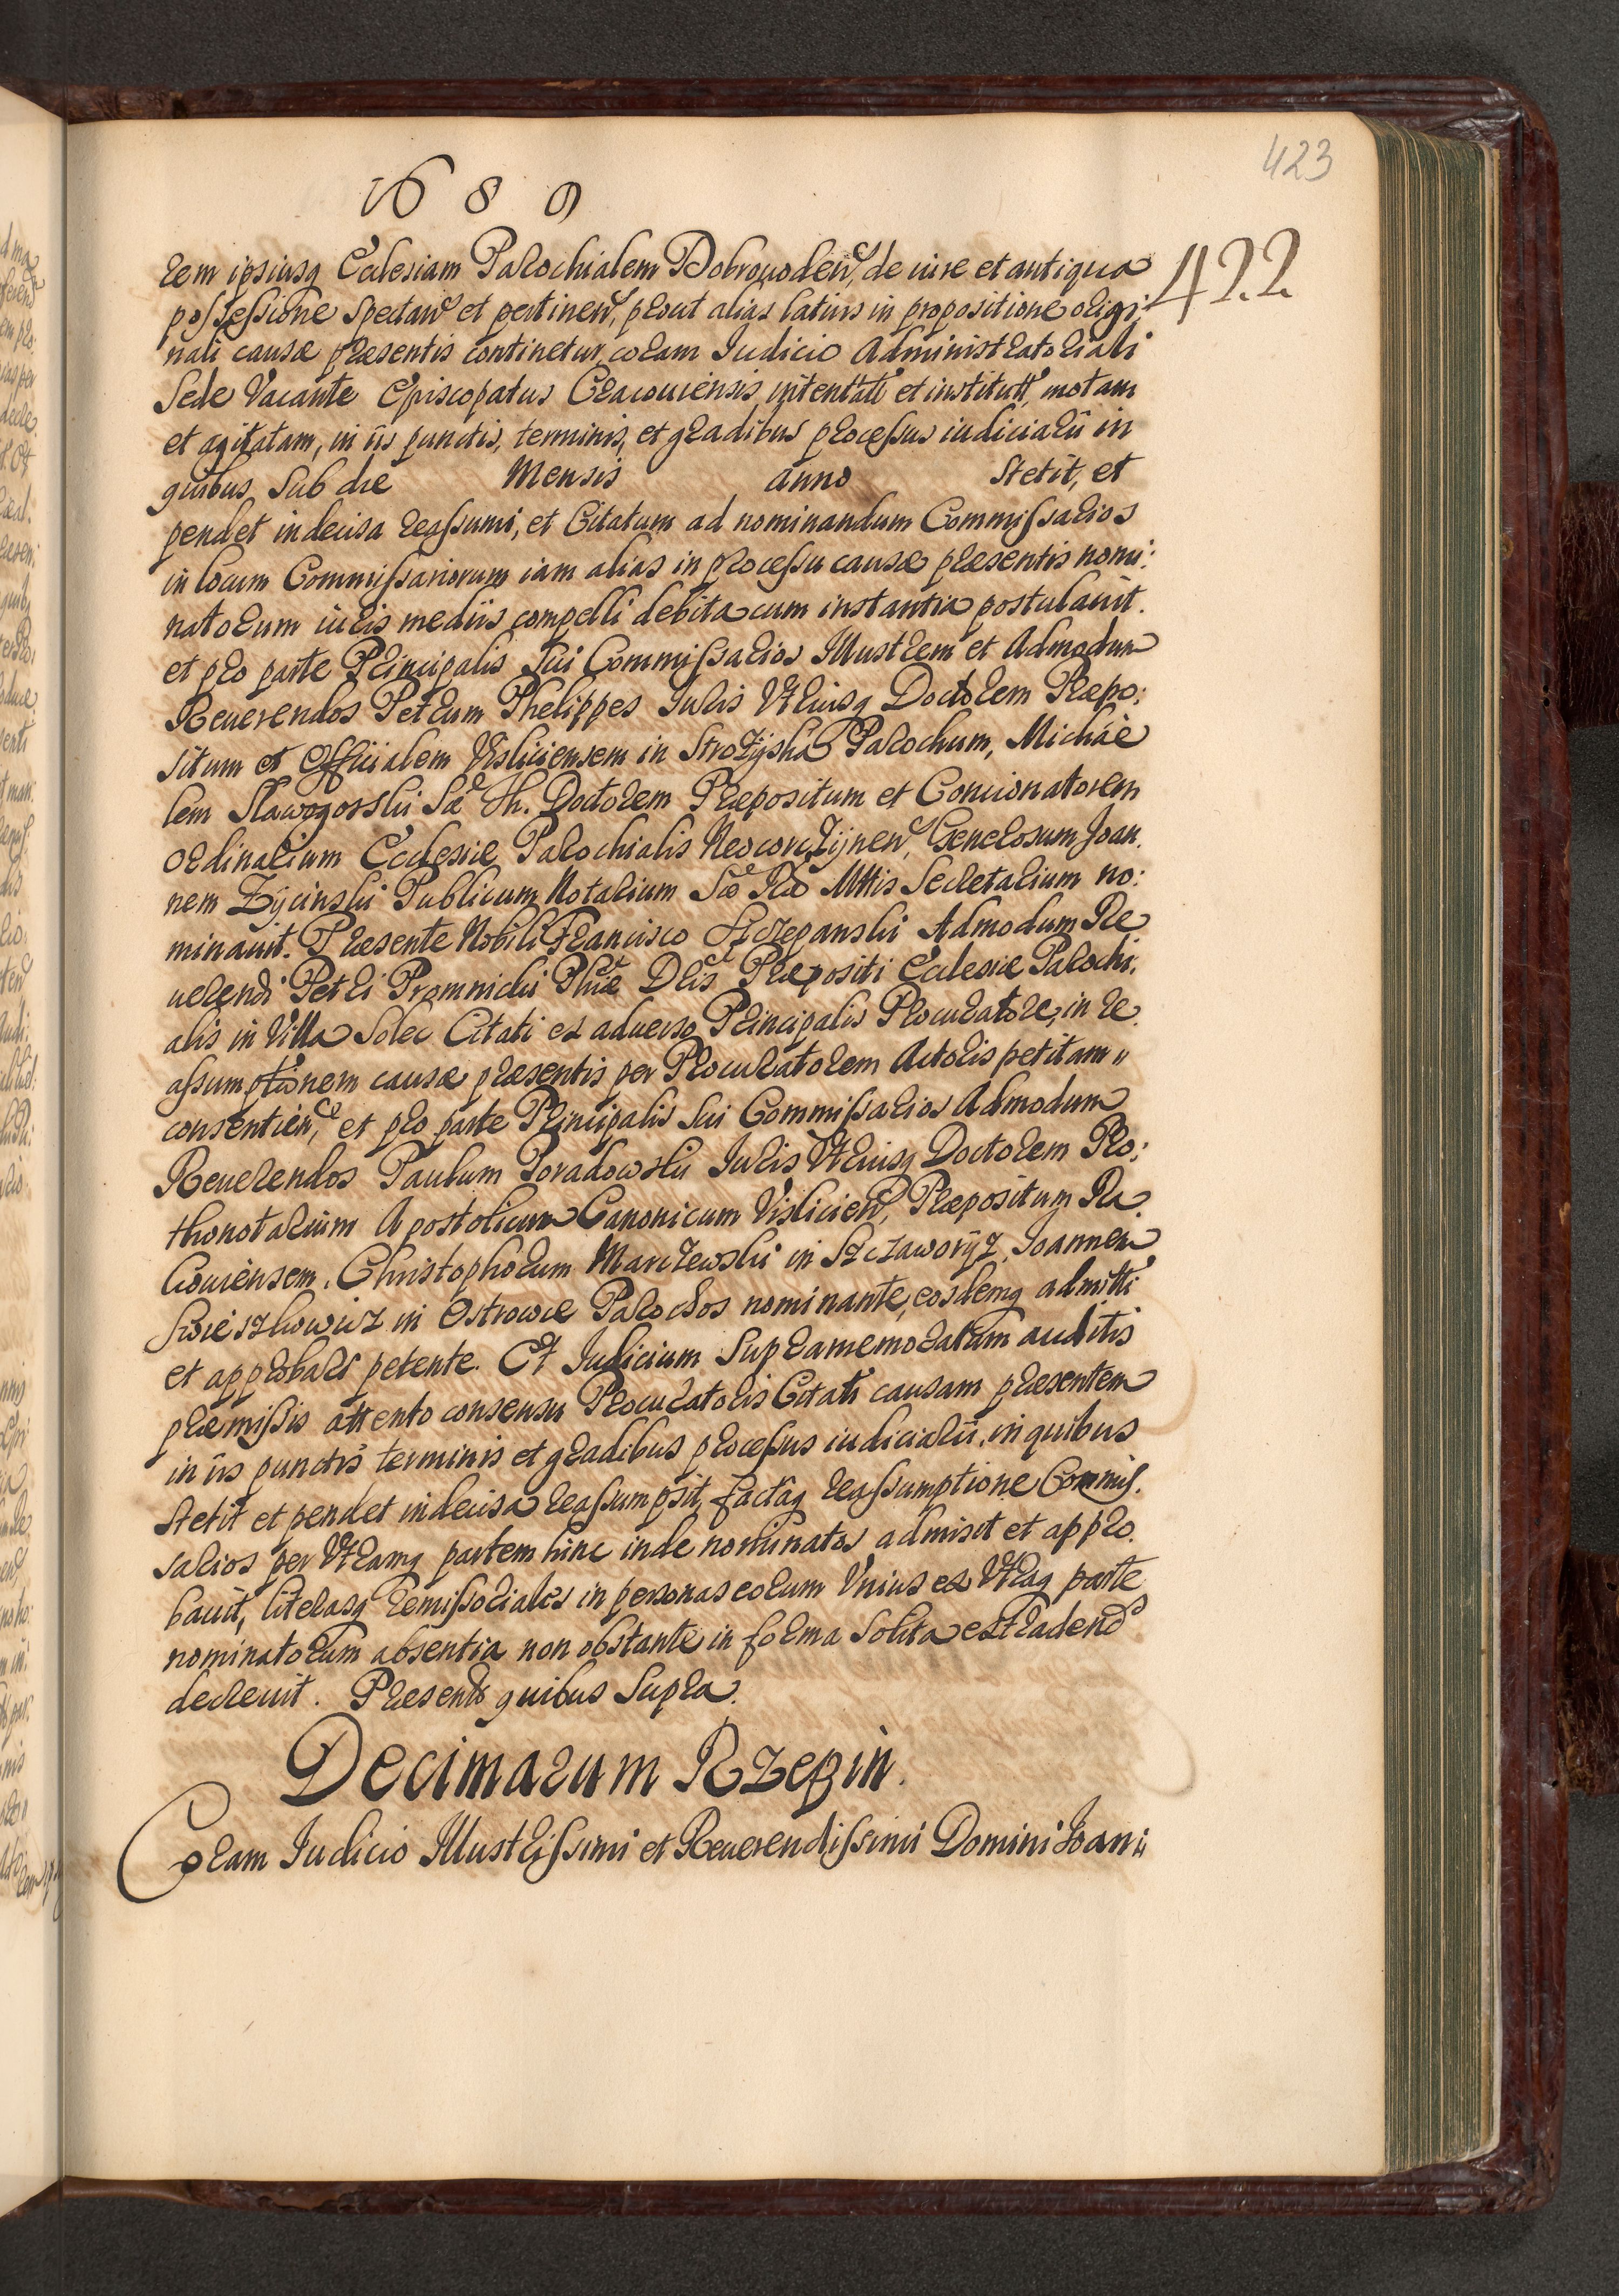 423
1689
422
rem ipsiusq Ecclesiam Parochialem Dobrowoden, de iure et antiqua
possessione spectan et pertinen, prout alias latius in propositione origi:
nali causæ præsentis continetur, coram Iudicio Administratoriali
Sede Vacante Episcopatus Cracoviensis intentati et institut, motam
et agitatam, in iis punctis, terminis, et gradibus processus iudiciarii in
quibus sub die Mensis anno stetit, et
pendet indecisa reassumi, et Citatum ad nominandum Commissarios
in locum Commissariorum iam alias in processu causæ præsentis nomi:
natorum iuris mediis compelli debita cum instantia postulavit.
et pro parte Principalis sui Commissarios Illustrem et Admodum
Reverendos Petrum Phelippes Iuris Utriusq Doctorem Præpo:
situm et Officialem Visliciensem in Strożyska Parochum, Michäe
lem Sławogorski Sæ Th. Doctorem Præpositum et Concionatorem
Ordinarium Ecclesiæ Parochialis Neocorczynen, Generosum Joan.
nem Zycinski Publicum Notarium Sæ Ræ Mttis Secretarium no:
minavit. Præsente Nobili Francisco Szczepanski Admodum Re
verendi Petri Promnicki Phiæ Dris Præpositi Ecclesiæ Parochi.
alis in Villa Solec Citati ex adverso Principalis Procuratore, in re
assumptionem causæ præsentis per Procuratorem Actoris petitam
consentien, et pro parte Principalis sui Commissarios Admodum
Reverendos Paulum Poradowski Iuris Utriusq Doctorem Pro:
thonotarium Apostolicum Canonicum Vislicien, Præpositum Ra
coviensem, Christophorum Marczewski in Szczaworyż, Joannem
Swieszkowicz in Ostrowce Parochos nominante, eosdemq admitti
et approbari petente. Et Iudicium Supramemoratum auditis
præmissis attento consensu Procuratoris Citati causam præsentem
in iis punctis terminis et gradibus processus iudiciarii, in quibus
stetit et pendet indecisa reassumpsit, factaq reassumptione Commis.
sarios per Utramq partem hinc inde nominatos admisit et appro.
bavit, literasq remissoriales in personas eorum Unius ex Utraq parte
nominatorum absentia non obstante in forma solita extradend
decrevit. Præsent quibus Supra.
Decimarum Rzepin.
Coram Iudicio Illustrissimi et Reverendissimi Domini Joani